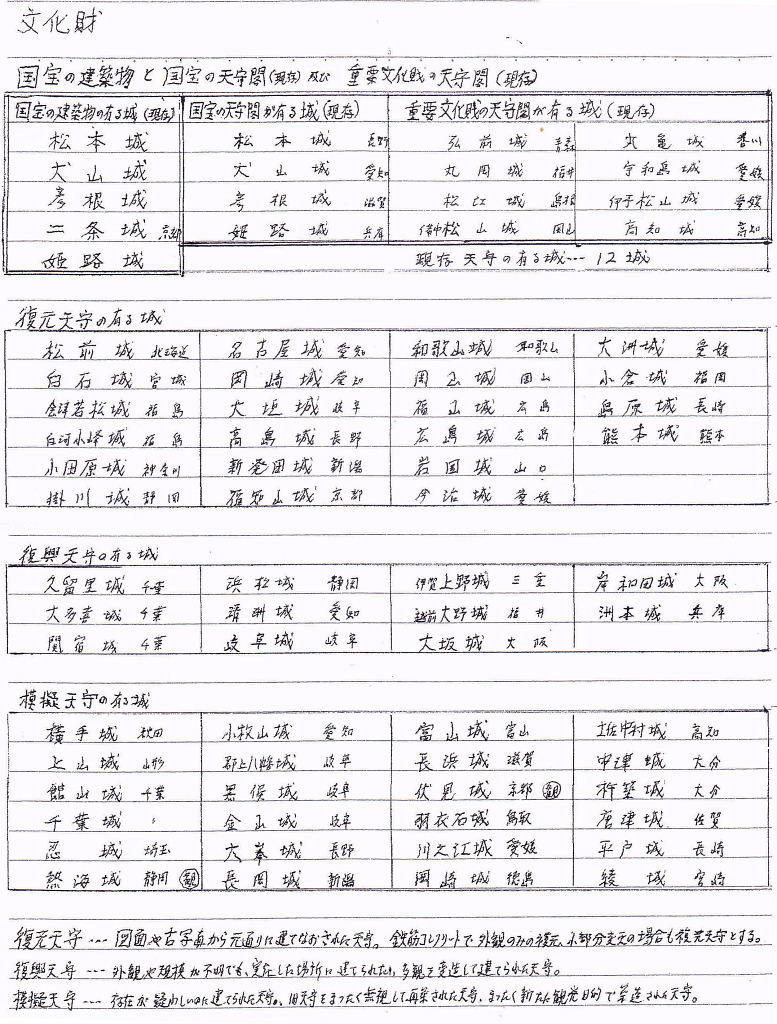 文化財
国宝の建築物と国宝の天守閣(現存)及び 重要文化財の天守閣(現存)
国宝の建築物の有る城(現存) 国宝の天守閣が有る城(現存) 重要文化財の天守閣が有る城(現存)
松本城 松本城 長野 弘前城 青森 丸亀城 香川
犬山城 犬山城 愛知 丸岡城 福井 宇和島城 愛媛
彦根城 彦根城 滋賀 松江城 島根 伊予松山城 愛媛
二条城 京都 姫路城 兵庫 備中松山城 岡山 高知城 高知
姫路城 現存天守の有る城…12城
復元天守の有る城
松前城 北海道 名古屋城 愛知 和歌山城 和歌山 大洲城 愛媛
白石城 宮城 岡崎城 愛知 岡山城 岡山 小倉城 福岡
会津若松城 福島 大垣城 岐阜 福山城 広島 島原城 長崎
白河小峰城 福島 高島城 長野 広島城 広島 熊本城 熊本
小田原城 神奈川 新発田城 新潟 岩国城 山口
掛川城 静岡 福知山城 京都 今治城 愛媛
復興天守の有る城
久留里城 千葉 浜松城 静岡 伊賀上野城 三重 岸和田城 大阪
大多喜城 千葉 清洲城 愛知 越前大野城 福井 洲本城 兵庫
関宿城 千葉 岐阜城 岐阜 大坂城 大阪
模擬天守の有る城
横手城 秋田 小牧山城 愛知 富山城 富山 土佐中村城 高知
上山城 山形 郡上八幡城 岐阜 長浜城 滋賀 中津城 大分
館山城 千葉 墨俣城 岐阜 伏見城 京都 観 杵築城 大分
千葉城 〃 金山城 岐阜 羽衣石城 鳥取 唐津城 佐賀
忍城 埼玉 大峯城 長野 川之江城 愛媛 平戸城 長崎
熱海城 静岡 観 長岡城 新潟 岡崎城 徳島 綾城 宮崎
復元天守…図面や古写真から元通りに建てなおされた天守。鉄筋コンクリートで外観のみの復元、小部分変更の場合も復元天守とする。
復興天守…外観や規模が不明でも、実在した場所に建てられたり、外観を変造して建てられた天守。
模擬天守…存在が疑わしいのに建てられた天守。、旧天守をまったく無視して再築された天守、まったく新たに観光目的で築造された天守。